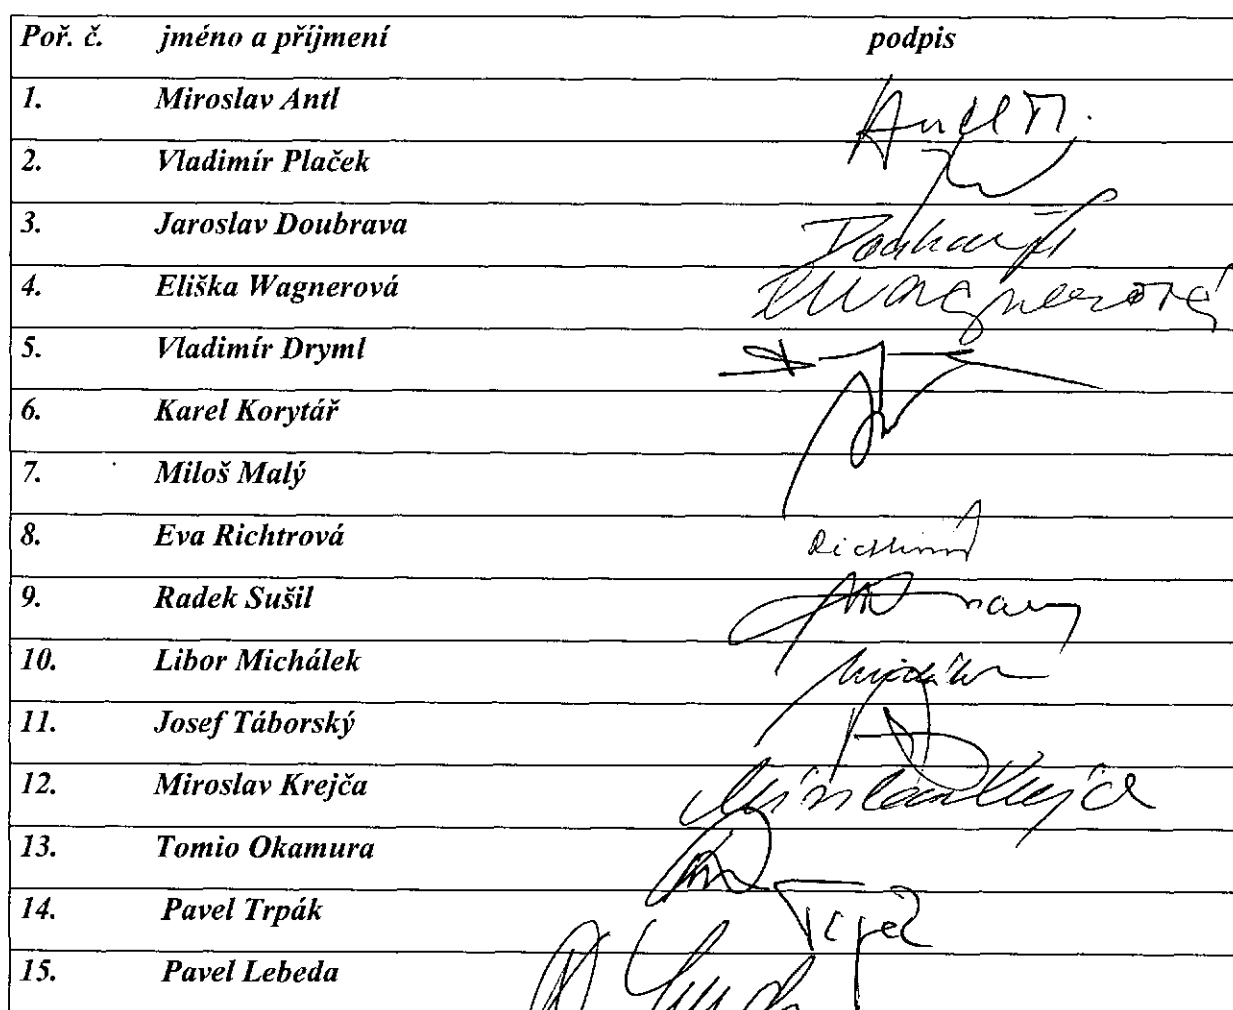 Poř. č. jméno a příjmení podpis
1. Miroslav Antl Antl M.
2. Vladimír Plaček
3. Jaroslav Doubrava
4. Eliška Wagnerová EWagnerová
5. Vladimír Dryml
6. Karel Korytář
7. Miloš Malý
8. Eva Richtrová
9. Radek Sušil
10. Libor Michálek
11. Josef Táborský
12. Miroslav Krejča Miroslav Krejča
13. Tomio Okamura
14. Pavel Trpák
15. Pavel Lebeda